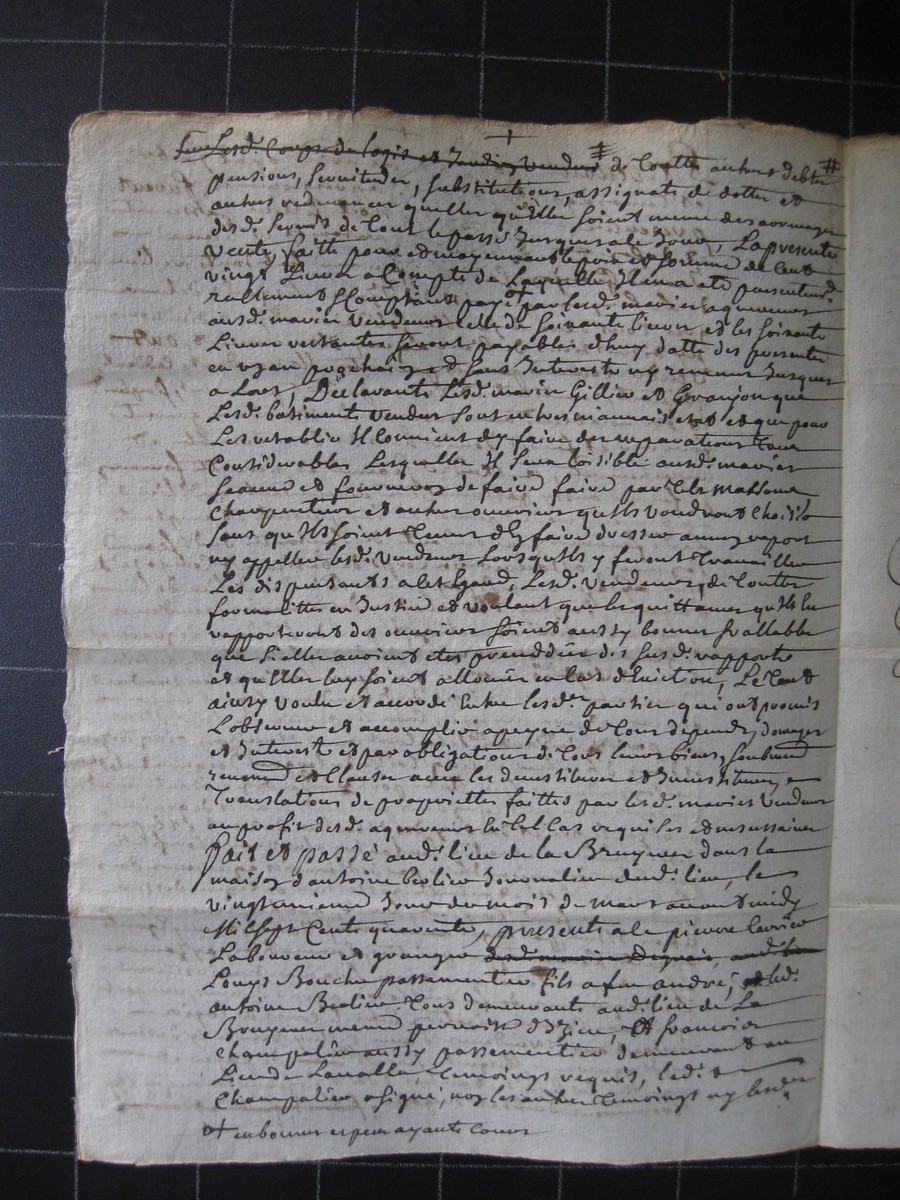 Lesd. Corps de logis et Jardin vendus de toutte autres debtes
pensions, servitudes, substitutions, assignats de dotte et
autres redevances quelles qu'elles soient meme des arrerages
desd. servis de tout le passé jusques a ce jour, La presente
vente faitte pour et moyennant le prix et somme de Cent
vingt Livres a Compte de Laquelle Il en a eté presentem.t
reellement Comptant payé par lesd. mariés aquereurs
ausd. mariés vendeurs Celle de soixante livres et les soixante
Livres restantes seront payables d'huy datte des presentes
en un an prochain et sans Interests ny remeur jusques
a Lors, Declarants Lesd. mariés Gillier et Granjon que
Lesd. batiments vendus sont en tres mauvais etat et que pour
Les retablir Il Convient d'y faire des reparations
Considerables Lesquelles Il sera loisible ausd. mariés
et fourneron de faire faire par tels massons
charpentiers et autres ouvriers qu'ils voudront Choisir
sans qu'ils soient tenus d'en faire dresser aucun raport
ny appeller lesd. vendeurs Lorsqu'ils y feront travailler
Les dispensants a cet Egard, Lesd. vendeurs, de touttes
formalittés en Justice et voulant que les quittances qu'ils en
rapporteront des ouvriers soient aussy bonnes & vallables
que si elles avoient eté precedées des susd. rapports
et qu'elles leur soient allouées en cas d'Eviction, Le tout
ainsy voulu et accordé Entre lesd. parties qui ont promis
L'observer et accomplir a peyne de tous depends, domages
et Interests et par obligations de tous leurs biens, soubmis
renonc. et Clauses avec les devestitures et Investitures
Translations de proprietté faittes par lesd. mariés vendeurs
au profit desd. aquereurs en tel cas requises et necessaires
fait et passé aud. lieu de la Bruyere dans la
maison d'antoine Beolier Journalier dud. lieu, le
vingtunieme Jour du mois de mars avant midy
Mil sept Cents quarante, presents a ce pierre
Laboureur et granger
Louys Bouche passementier fils a feu andré, et led.
antoine Beolier tous demeurants aud. lieu de La
Bruyere meme parroisse d'Izieu, Et francois
Champalier aussy passementier demeurant au
Lieu de Lavalla temoings requis, led.
Champalier a signé, non les autres temoings ny lesd.
en bonnes especes ayants Cours